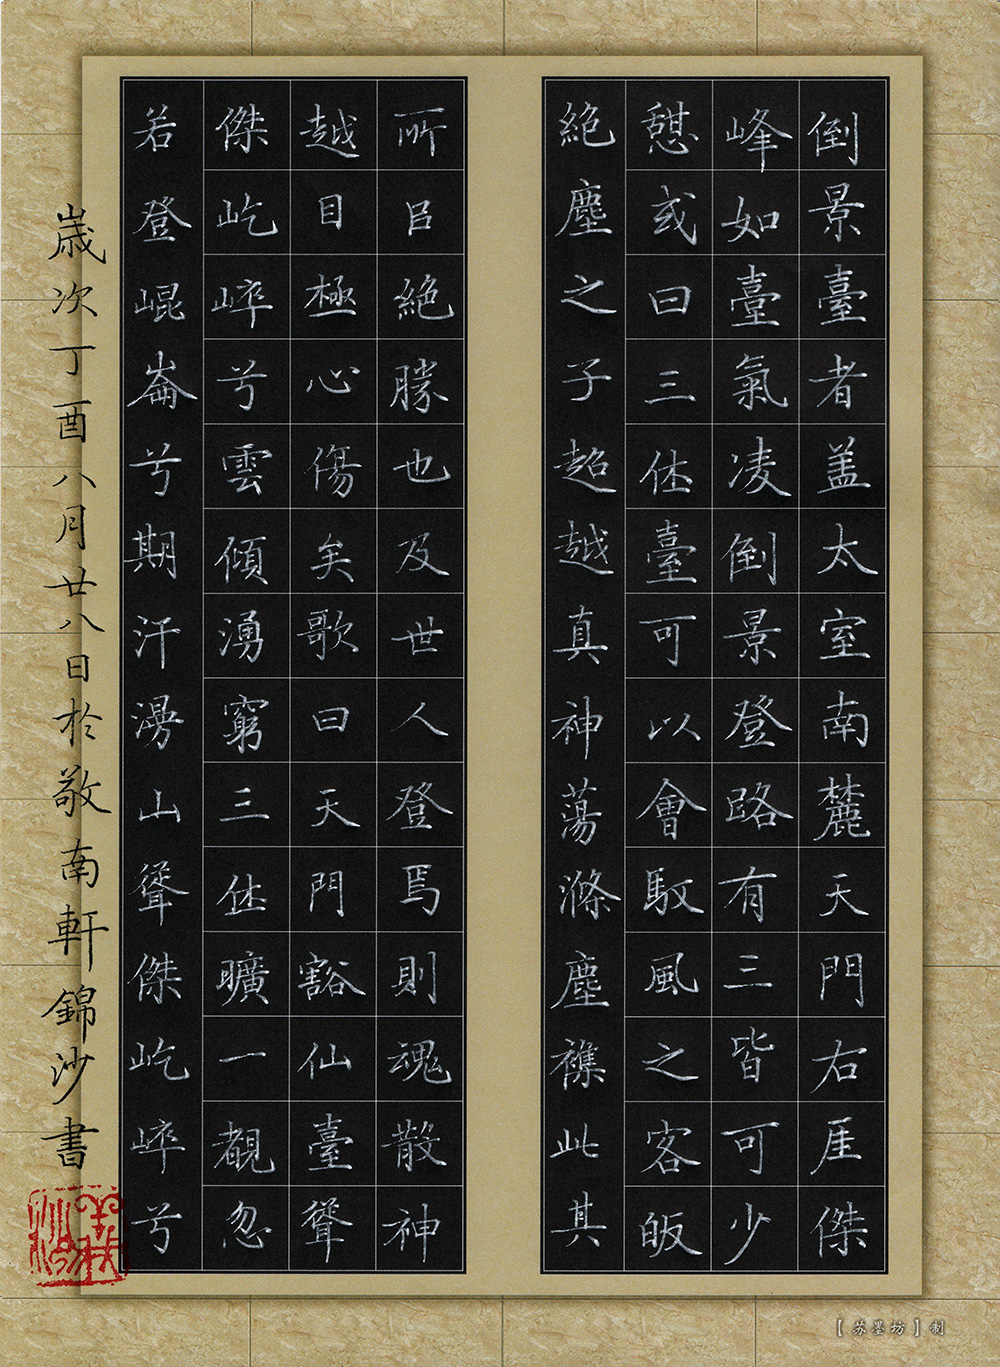 倒景臺者盖太室南麓天門右厓傑
峰如臺氣凌倒景登路有三皆可少
憇或曰三休臺可以會馭風之客皈
絕塵之子超越真神蕩滌塵襟此其
所㠯絕勝也及世人登焉則魂散神
越目極心傷矣歌曰天門豁仙臺聳
傑屹崒兮雲傾湧窮三休曠一覩忽
若登崐崙兮期汗漫山聳傑屹崒兮
歲次丁酉八月廿八日於敬南軒錦沙書
【苏墨坊】制